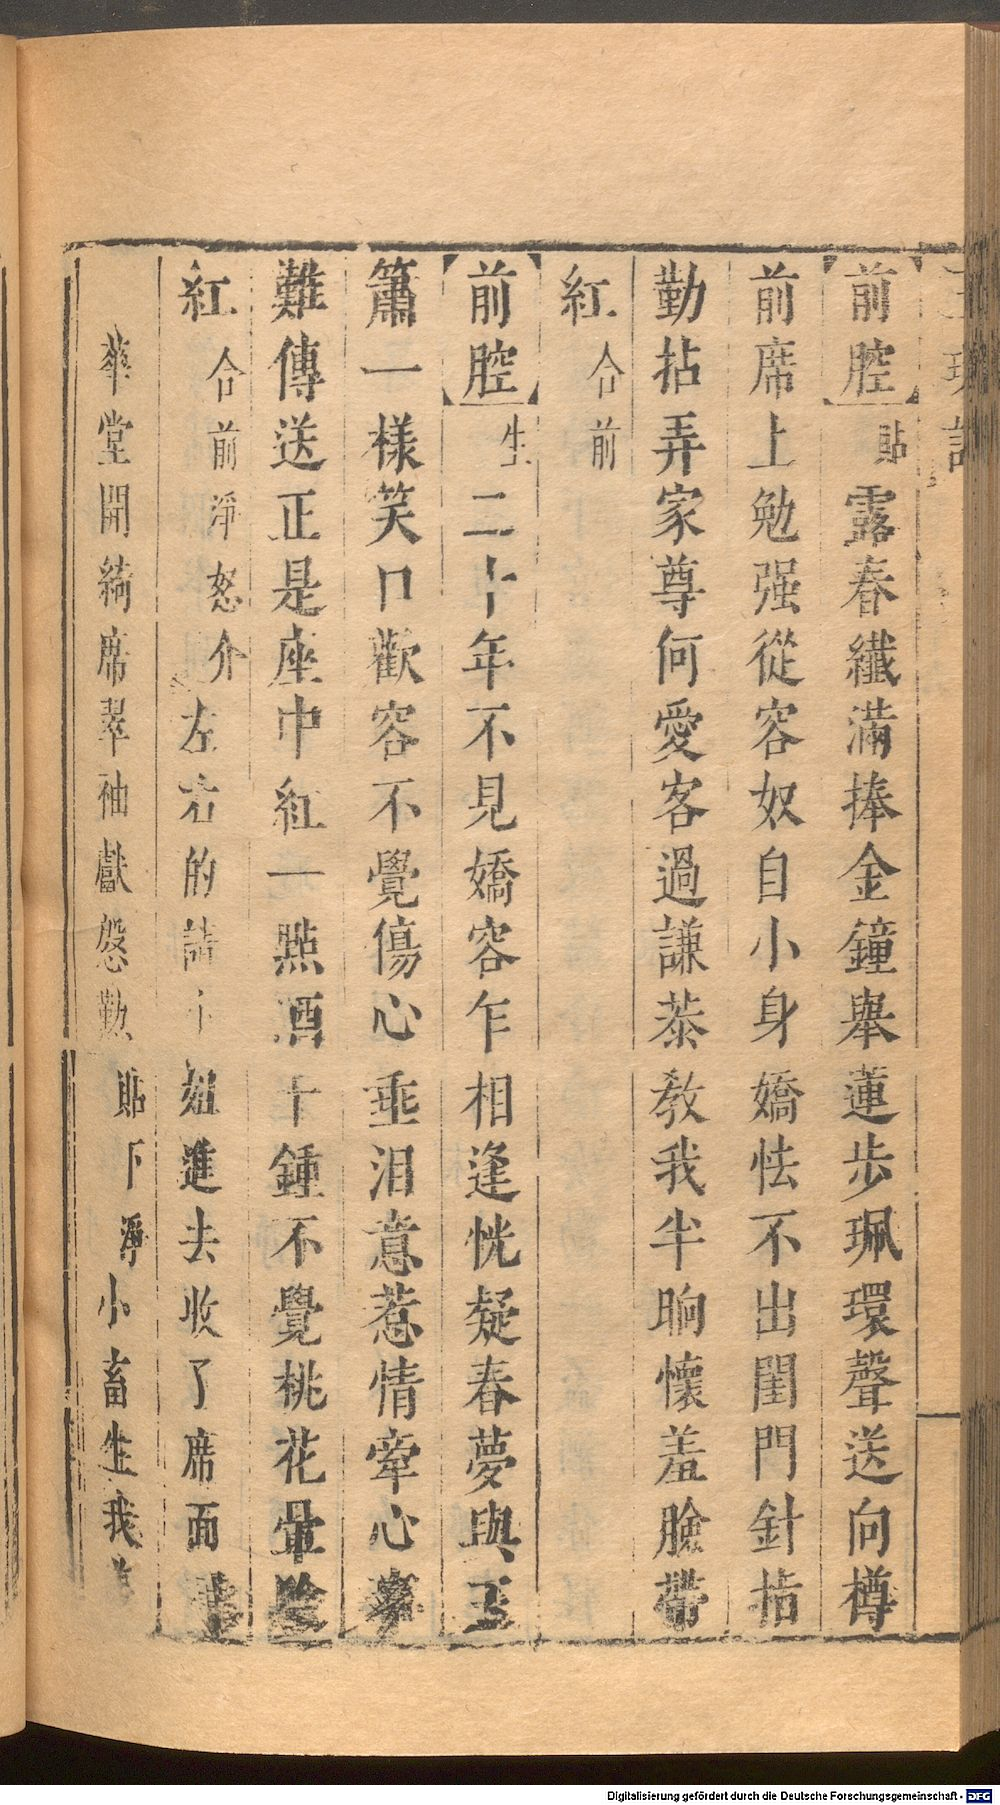 【前腔】貼露春纖滿捧金鐘舉蓮步珮環聲送向樽
前席上勉强從容奴自小身嬌怯不出閨門針指
勤拈弄家尊何愛客過謙恭教我半晌懷羞臉帶
紅合前
【前腔】生二十年不見嬌容乍相逢恍疑春夢與玉
簫一樣笑口歡容不覺傷心垂泪意惹情牽心事
難傳送正是座中紅一點酒十鍾不覺桃花暈臉
紅合前淨怒介左右的請小姐進去收了席面
華堂開綺席翠袖獻慇勤貼下淨小畜生我
Digitalisierung gefördert durch die Deutsche Forschungsgemeinschaft - DFG